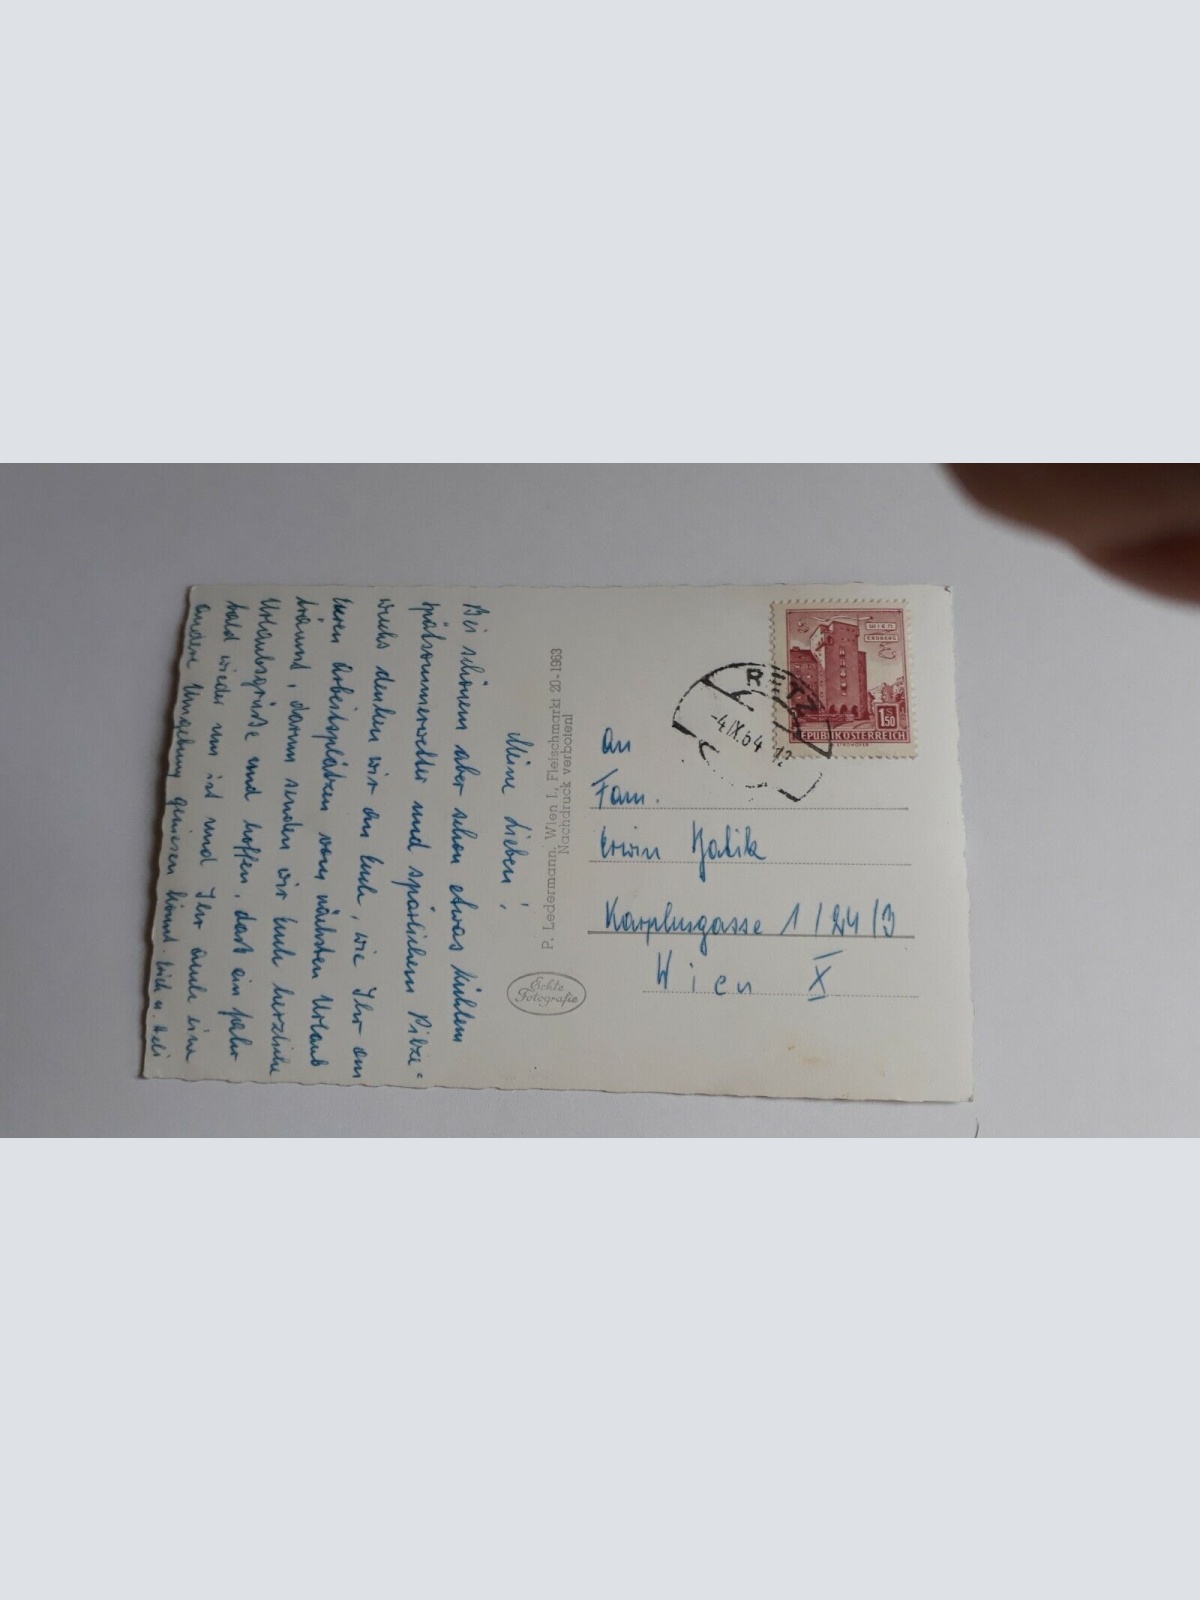 Meine Lieben!
Bei schönem aber schon etwas kühlem
Spätsommerwetter und spärlichem Pilze-
wuchs denken wir an Euch, wie Ihr am
Euren Arbeitsplätzen vom nächsten Urlaub
träumt, darum senden wir Euch herzliche
Urlaubsgrüße und hoffen, daß ein Jahr
bald wieder um ist und Ihr auch eine
andere Umgebung geniesen könnt. Erich u. Heli
P. Ledermann, Wien I., Fleischmarkt 20-1963
Nachdruck verboten!
Echte
Fotografie
RETZ
-4.IX.64 12
WIEN
ERDBERG
1.50
REPUBLIK ÖSTERREICH
An
Fam.
Erwin
Karplusgasse 1/24/3
Wien X